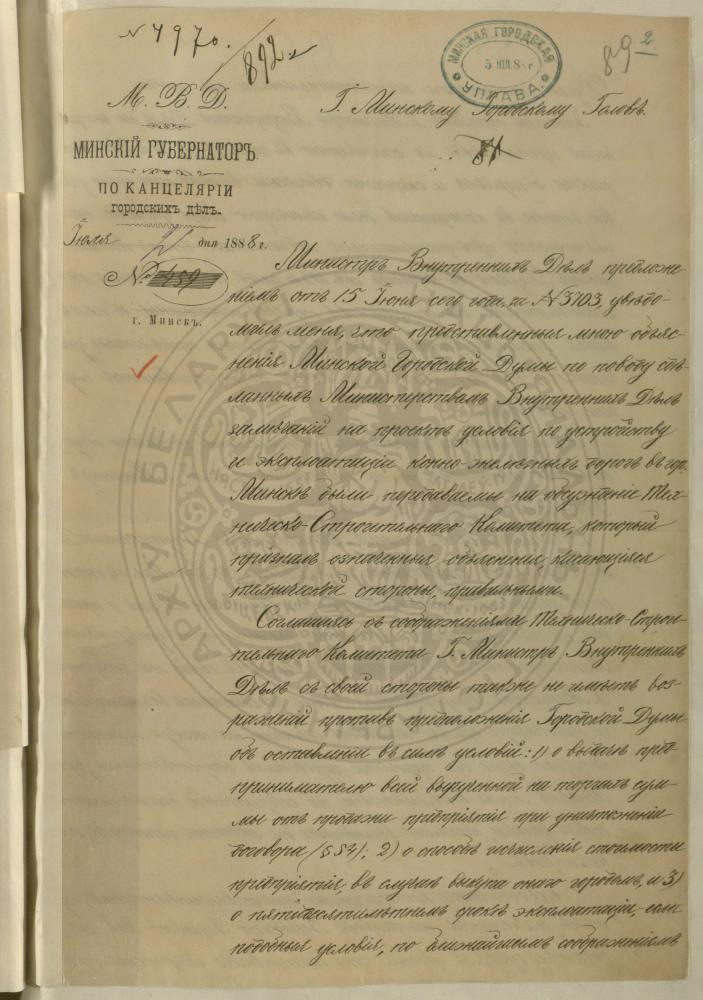 № 4970.
892
МИНСКАЯ ГОРОДСКАЯ
5 ІЮЛ. 88 г.
УПРАВА.
89 2
М. В. Д.
Г. Минскому Городскому Головѣ.
МИНСКІЙ ГУБЕРНАТОРЪ.
ПО КАНЦЕЛЯРІИ
городскихъ дѣлъ.
Іюля 2 дня 1888 г.
№ 459
г. Минскъ.
Министръ Внутреннихъ Дѣлъ предложе-
ніемъ отъ 15 Іюня сего года за №3703, увѣдо-
милъ меня, что представленныя мною объяс-
ненія Минской Городской Думы по поводу сдѣ-
ланныхъ Министерствомъ Внутреннихъ Дѣлъ
замѣчаній на проектъ условія по устройству
и эксплоатаціи конно-желѣзныхъ дорогъ въ гор.
Минскѣ были передаваемы на обсужденіе Тех-
ническо-Строительнаго Комитета, который
призналъ означенныя объясненія, касающіяся
технической стороны, правильными.
Соглашаясь съ соображеніями Техническо-Строи-
тельнаго Комитета Г. Министръ Внутреннихъ
Дѣлъ съ своей стороны также не имѣетъ воз-
раженій противъ предложенія Городской Думы
объ оставленіи въ силѣ условій: 1) о выдачѣ пред-
принимателю всей вырученной на торгахъ сум-
мы отъ продажи предпріятія при уничтоженіи
договора (§ 54); 2) о способѣ исчисленія стоимости
предпріятія, въ случаѣ выкупа онаго городомъ, и 3)
о пятидесятилѣтнемъ срокѣ эксплоатаціи,-если
подобныя условія, по ближайшимъ соображеніямъ
АРХІЎ БЕЛАРУСІ